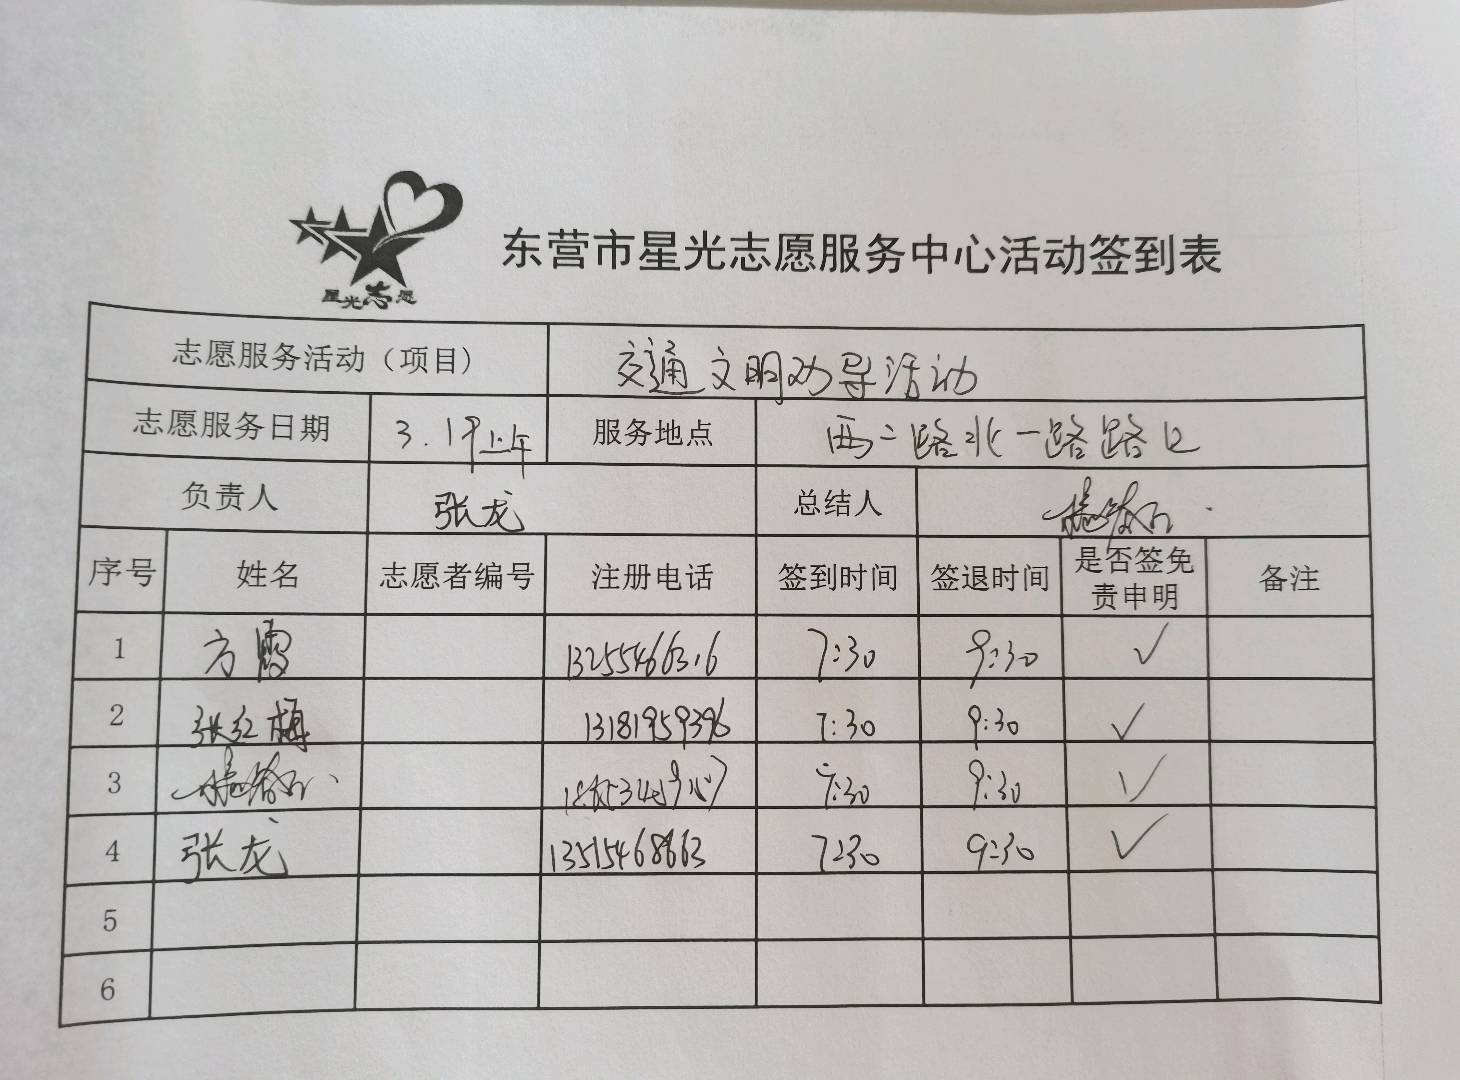 星光志愿
东营市星光志愿服务中心活动签到表
志愿服务活动（项目） 交通文明劝导活动
志愿服务日期 3.19上午 服务地点 西二路北一路路口
负责人 张龙 总结人
序号 姓名 志愿者编号 注册电话 签到时间 签退时间 是否签免责申明 备注
1 方霞 13255466316 7:30 9:30 ✓
2 张红梅 13181959396 7:30 9:30 ✓
3 7:30 9:30 ✓
4 张龙 13515468663 7:30 9:30 ✓
5
6